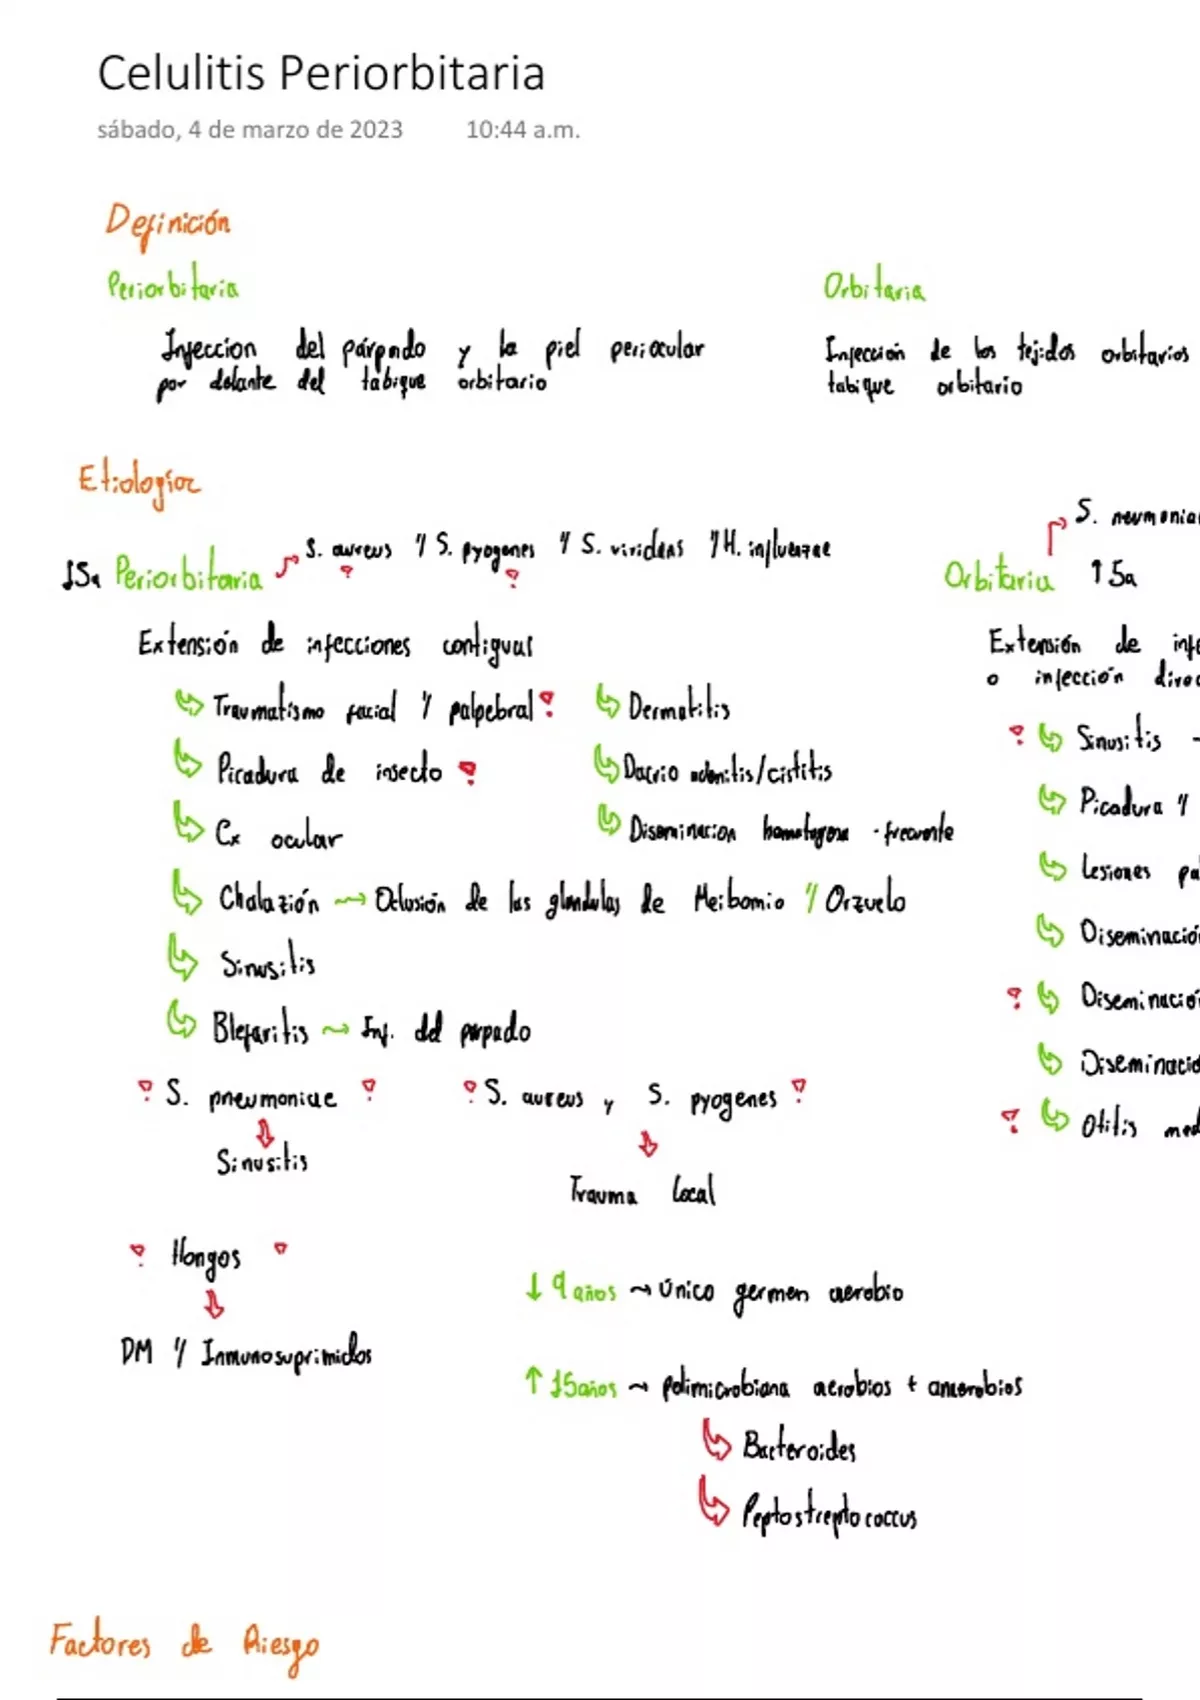 Celulitis Periorbitaria
sábado, 4 de marzo de 2023 10:44 a.m.
Definición
Periorbitaria
Infeccion del párpado y la piel periocular
por delante del tabique orbitario
Orbitaria
Infección de los tejidos orbitarios
tabique orbitario
Etiología
Periorbitaria
S. aureus // S. pyogenes // S. viridans // H. influenzae
Extensión de infecciones contiguas
Traumatismo facial // palpebral
Picadura de insecto
Cx ocular
Chalazión → Oclusión de las glandulas de Meibomio // Orzuelo
Sinusitis
Blefaritis → Inf. del parpado
Dermatitis
Dacrio adenitis/cistitis
Diseminacion hematogena - frecuente
S. pneumoniae
↓
Sinusitis
S. aureus y S. pyogenes
↓
Trauma local
Hongos
↓
DM // Inmunosuprimidos
↓ 9 años → único germen aerobio
↑ 15 años → polimicrobiana aerobios + anaerobios
Bacteroides
Peptostreptococcus
S. neumonia
Orbitaria ↑ 5a
Extensión de inf
o infección direc
Sinusitis -
Picadura //
Lesiones pa
Diseminació
Diseminació
Diseminació
Otitis med
Factores de Riesgo